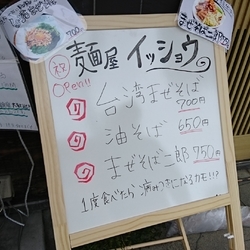 祝
OPen!!
麺屋 イッショウ
台湾まぜそば
700円
油そば 650円
まぜそば二郎 750円
1度食べたら、病みつきになるカモ!!?